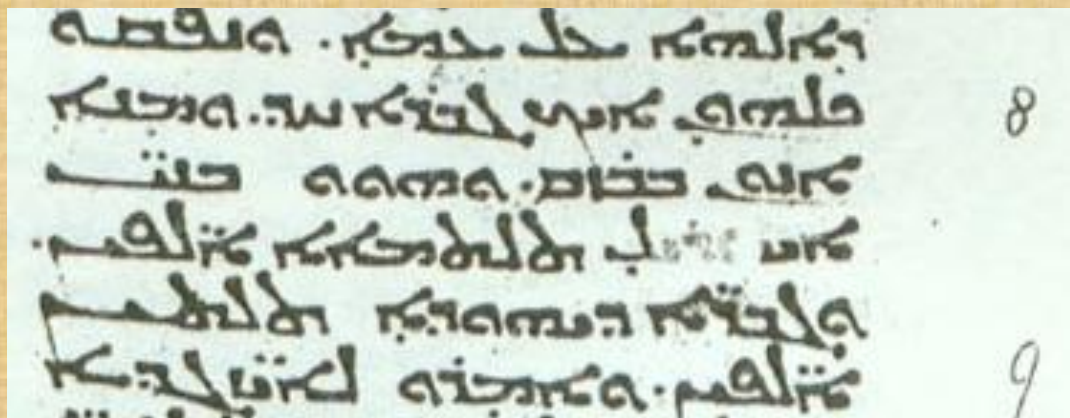 ܕܐܠܗܐ ܥܠ ܥܡܐ. ܘܢܦܩܘ
ܟܠܗܘܢ ܐܝܟ ܓܒܪܐ ܚܕ. ܘܡܢܐ 8
ܐܢܘܢ ܒܒܙܩ. ܘܗܘܘ ܒܢܝ̈
ܬܠܬܡܐܐ ܐܠܦ̈ܝܢ.
ܘܓܒܪ̈ܐ ܕܝܗܘܕܐ ܬܠܬܝܢ
ܐܠܦ̈ܝܢ. ܘܐܡܪܘ ܠܐܝܙܓܕ̈ܐ 9